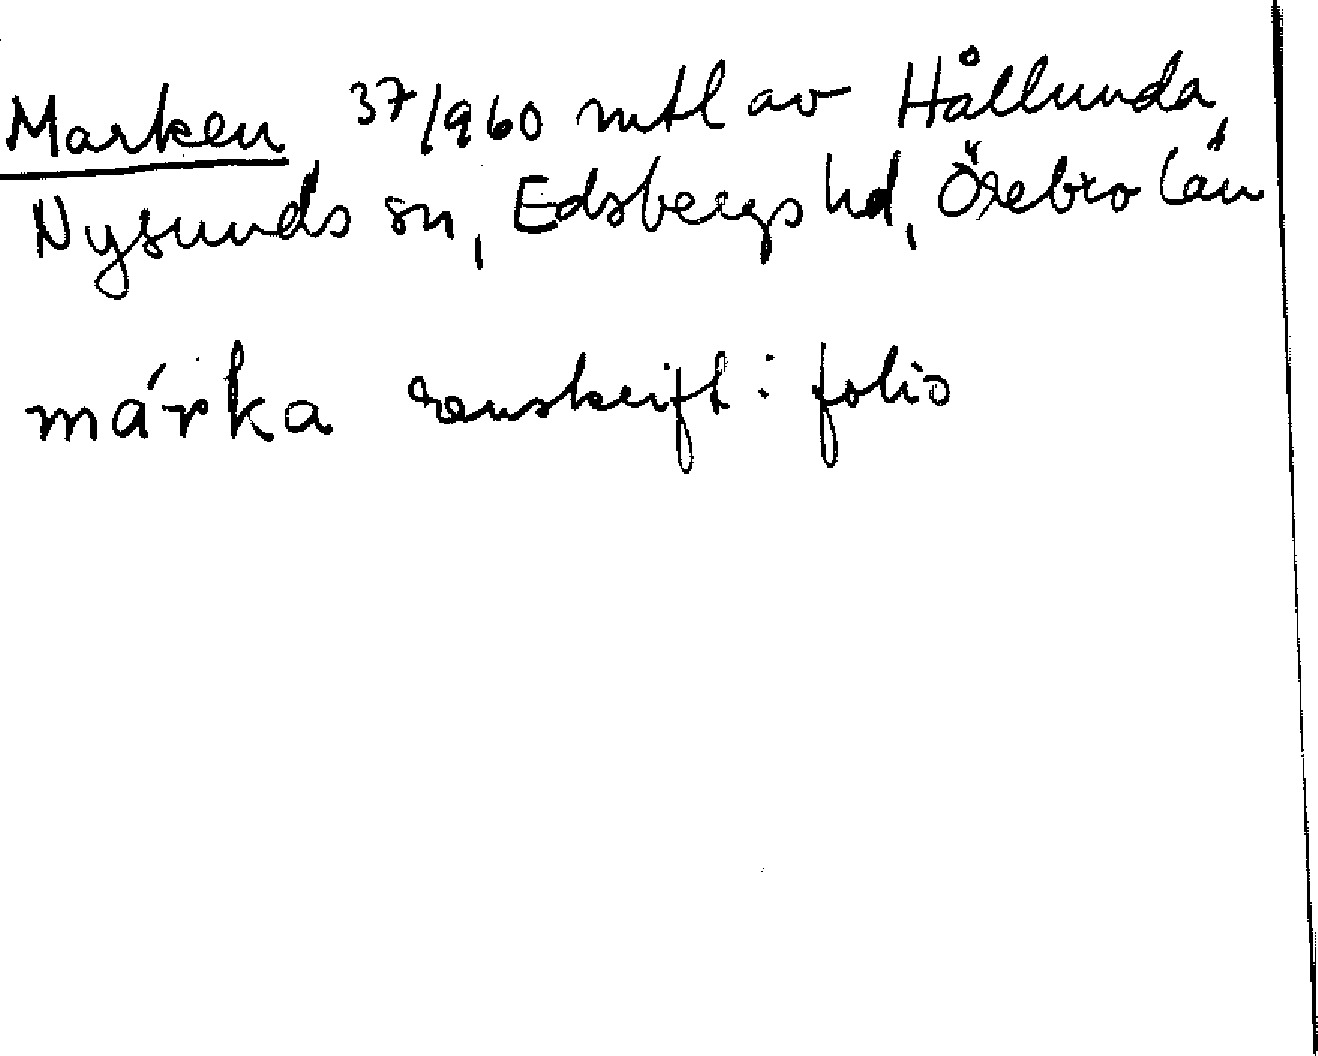 Marken 37/960 mtl av Hållunda,
Nysunds sn, Edsbergs hd, Örebro län
márka renskrift: folio